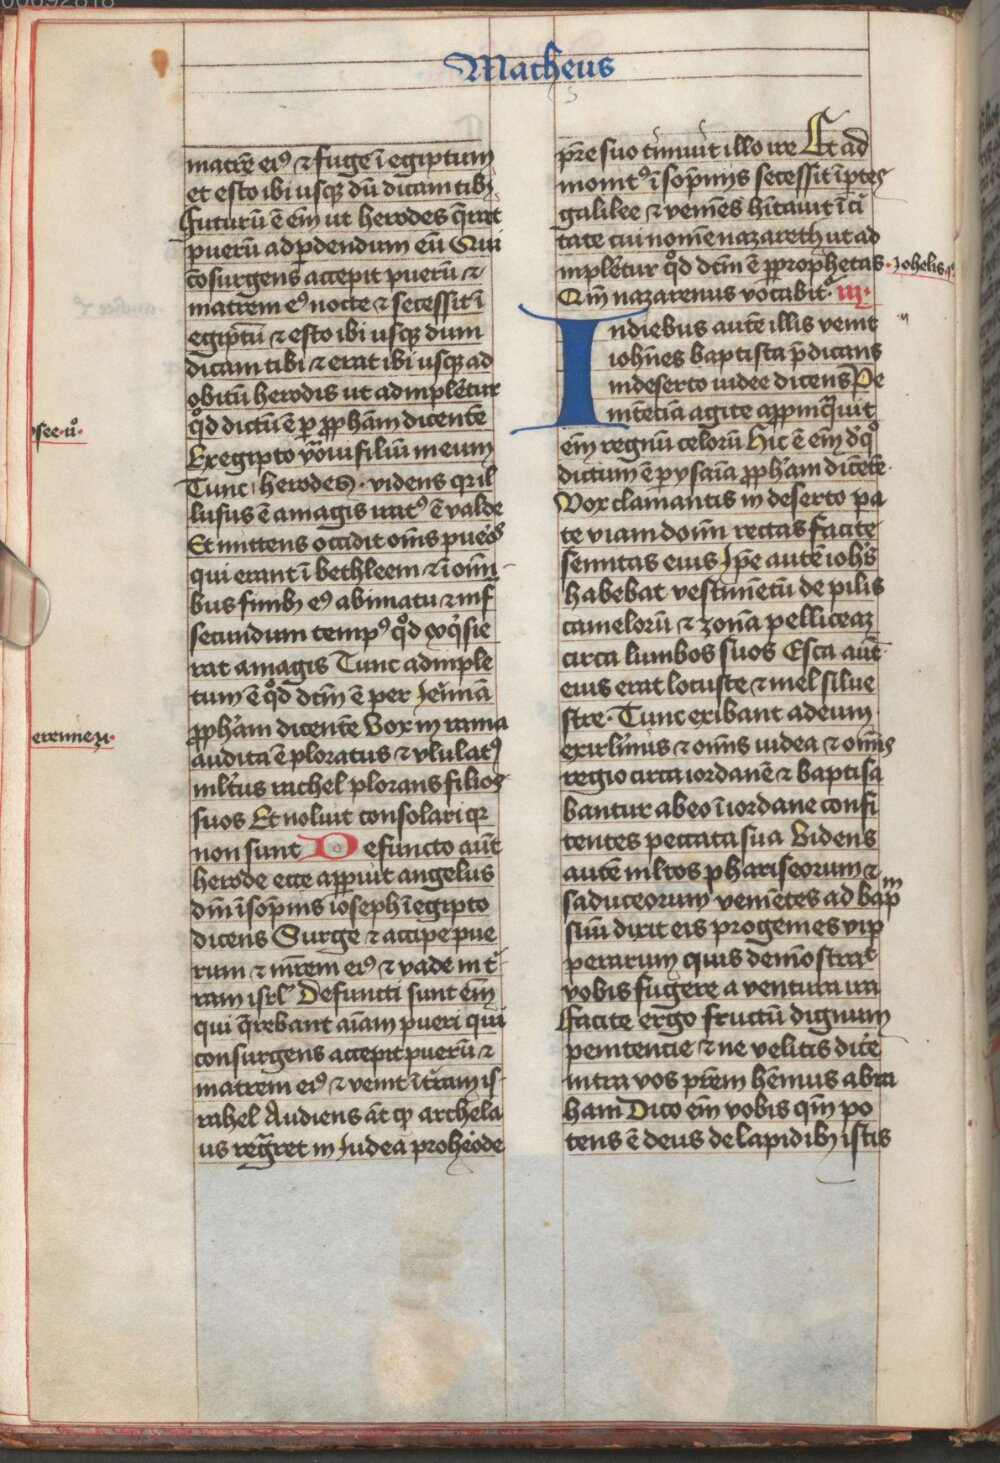 Matheus
matrē ei⁹ ⁊ fuge ī egiptum
et esto ibi usqʒ dū dicam tibi
Futurū ē em̄ ut herodes q̄rat
puerū ad ꝑdendum eū Qui
cōsurgens accepit puerū ⁊
matrem e⁹ nocte ⁊ secessit ī
egiptū ⁊ esto ibi usqʒ dum
dicam tibi ⁊ erat ibi usqʒ ad
obitū herodis ut adimplētur
qͦd dictū ē ꝑ ꝓph̄am dicentē
Ex egipto vocaui filiū meum
Tunc herodes videns qr il
lusus ē a magis irat⁹ ē valde
Et mittens occidit om̄s pueros
qui erant ī bethleem ⁊ ī om̄i
bus finibʒ e⁹ a bimatu ⁊ inf̄
secundum temp⁹ qͦd exq̇sie
rat a magis Tunc adimple
tum ē qͦd dc̄m ē per Jeremiā
ꝓph̄am dicentē Vox in rama
audita ē ploratus ⁊ ululat⁹
ml̄tus rachel plorans filios
suos Et noluit consolari qr
non sunt Defuncto aūt
herode ecce apparuit angelus
dn̄i ī sop̄nis ioseph ī egipto
dicens Surge ⁊ accipe pue
rum ⁊ mr̄em ei⁹ ⁊ vade in t̄
ram isrl̄ Defuncti sunt em̄
qui q̄rebant aīam pueri qui
consurgens accepit puerū ⁊
matrem ei⁹ ⁊ venit ī t̄ram is
rahel Audiens aūt qꝫ archela
us regn̄ret in Iudea pro herode
osee·u°·
eremie
pr̄e suo timuit illo ire Et ad
monit⁹ ī sop̄nijs secessit ī ꝑtes
galilee ⁊ veniēs hītauit ī ci
tate cui nomē nazareth ut ad
implētur qͦd dc̄m ē ꝑ prophetas
Qm̄ nazarenus vocabit᷑ iij·
Johelis
In diebus autē illis venit
ioh̄nes baptista p̄dicans
in deserto iudee dicens Pe
nitēciā agite appropinquauit
em̄ regnū celorū Hic ē em̄ de quo
dictum ē ꝑ ysaiā ꝓph̄am dicētē
Vox clamantis in deserto pa
te viam domini rectas facite
semitas eius Ip̄e autē ioh̄s
habebat vestimētū de pilis
camelorū ⁊ zonā pelliceaꝫ
circa lumbos suos Esca aūt
eius erat locuste ⁊ mel silue
stre· Tunc exibant ad eum
exirl̄imis ⁊ om̄is iudea ⁊ om̄is
regio circa iordanē ⁊ baptisa
bantur ab eo ī iordane confi
tentes peccata sua Videns
autē ml̄tos phariseorum ⁊
saduceorum veniētes ad bap
m
sūu dixit eis progenies vip
perarum quis demōstrat
vobis fugere a ventura ira
Facite ergo fructū dignum
penitencie ⁊ ne velitis dice
intra vos pr̄em hēmus abra
ham Dico em̄ vobis qm̄ po
tens ē deus de lapidibʒ istis